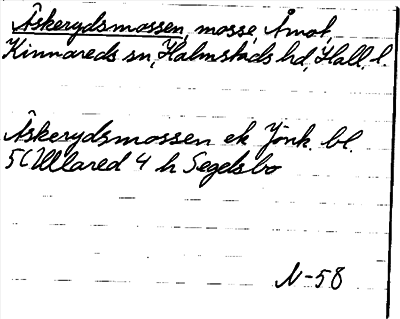 Åskerydsmossen, mosse, Åmot,
Kinnareds sn, Halmstads hd, Hall. l.
Åskerydsmossen ek Jönk. bl.
5C Ullared 4 h Segelsbo
N-58